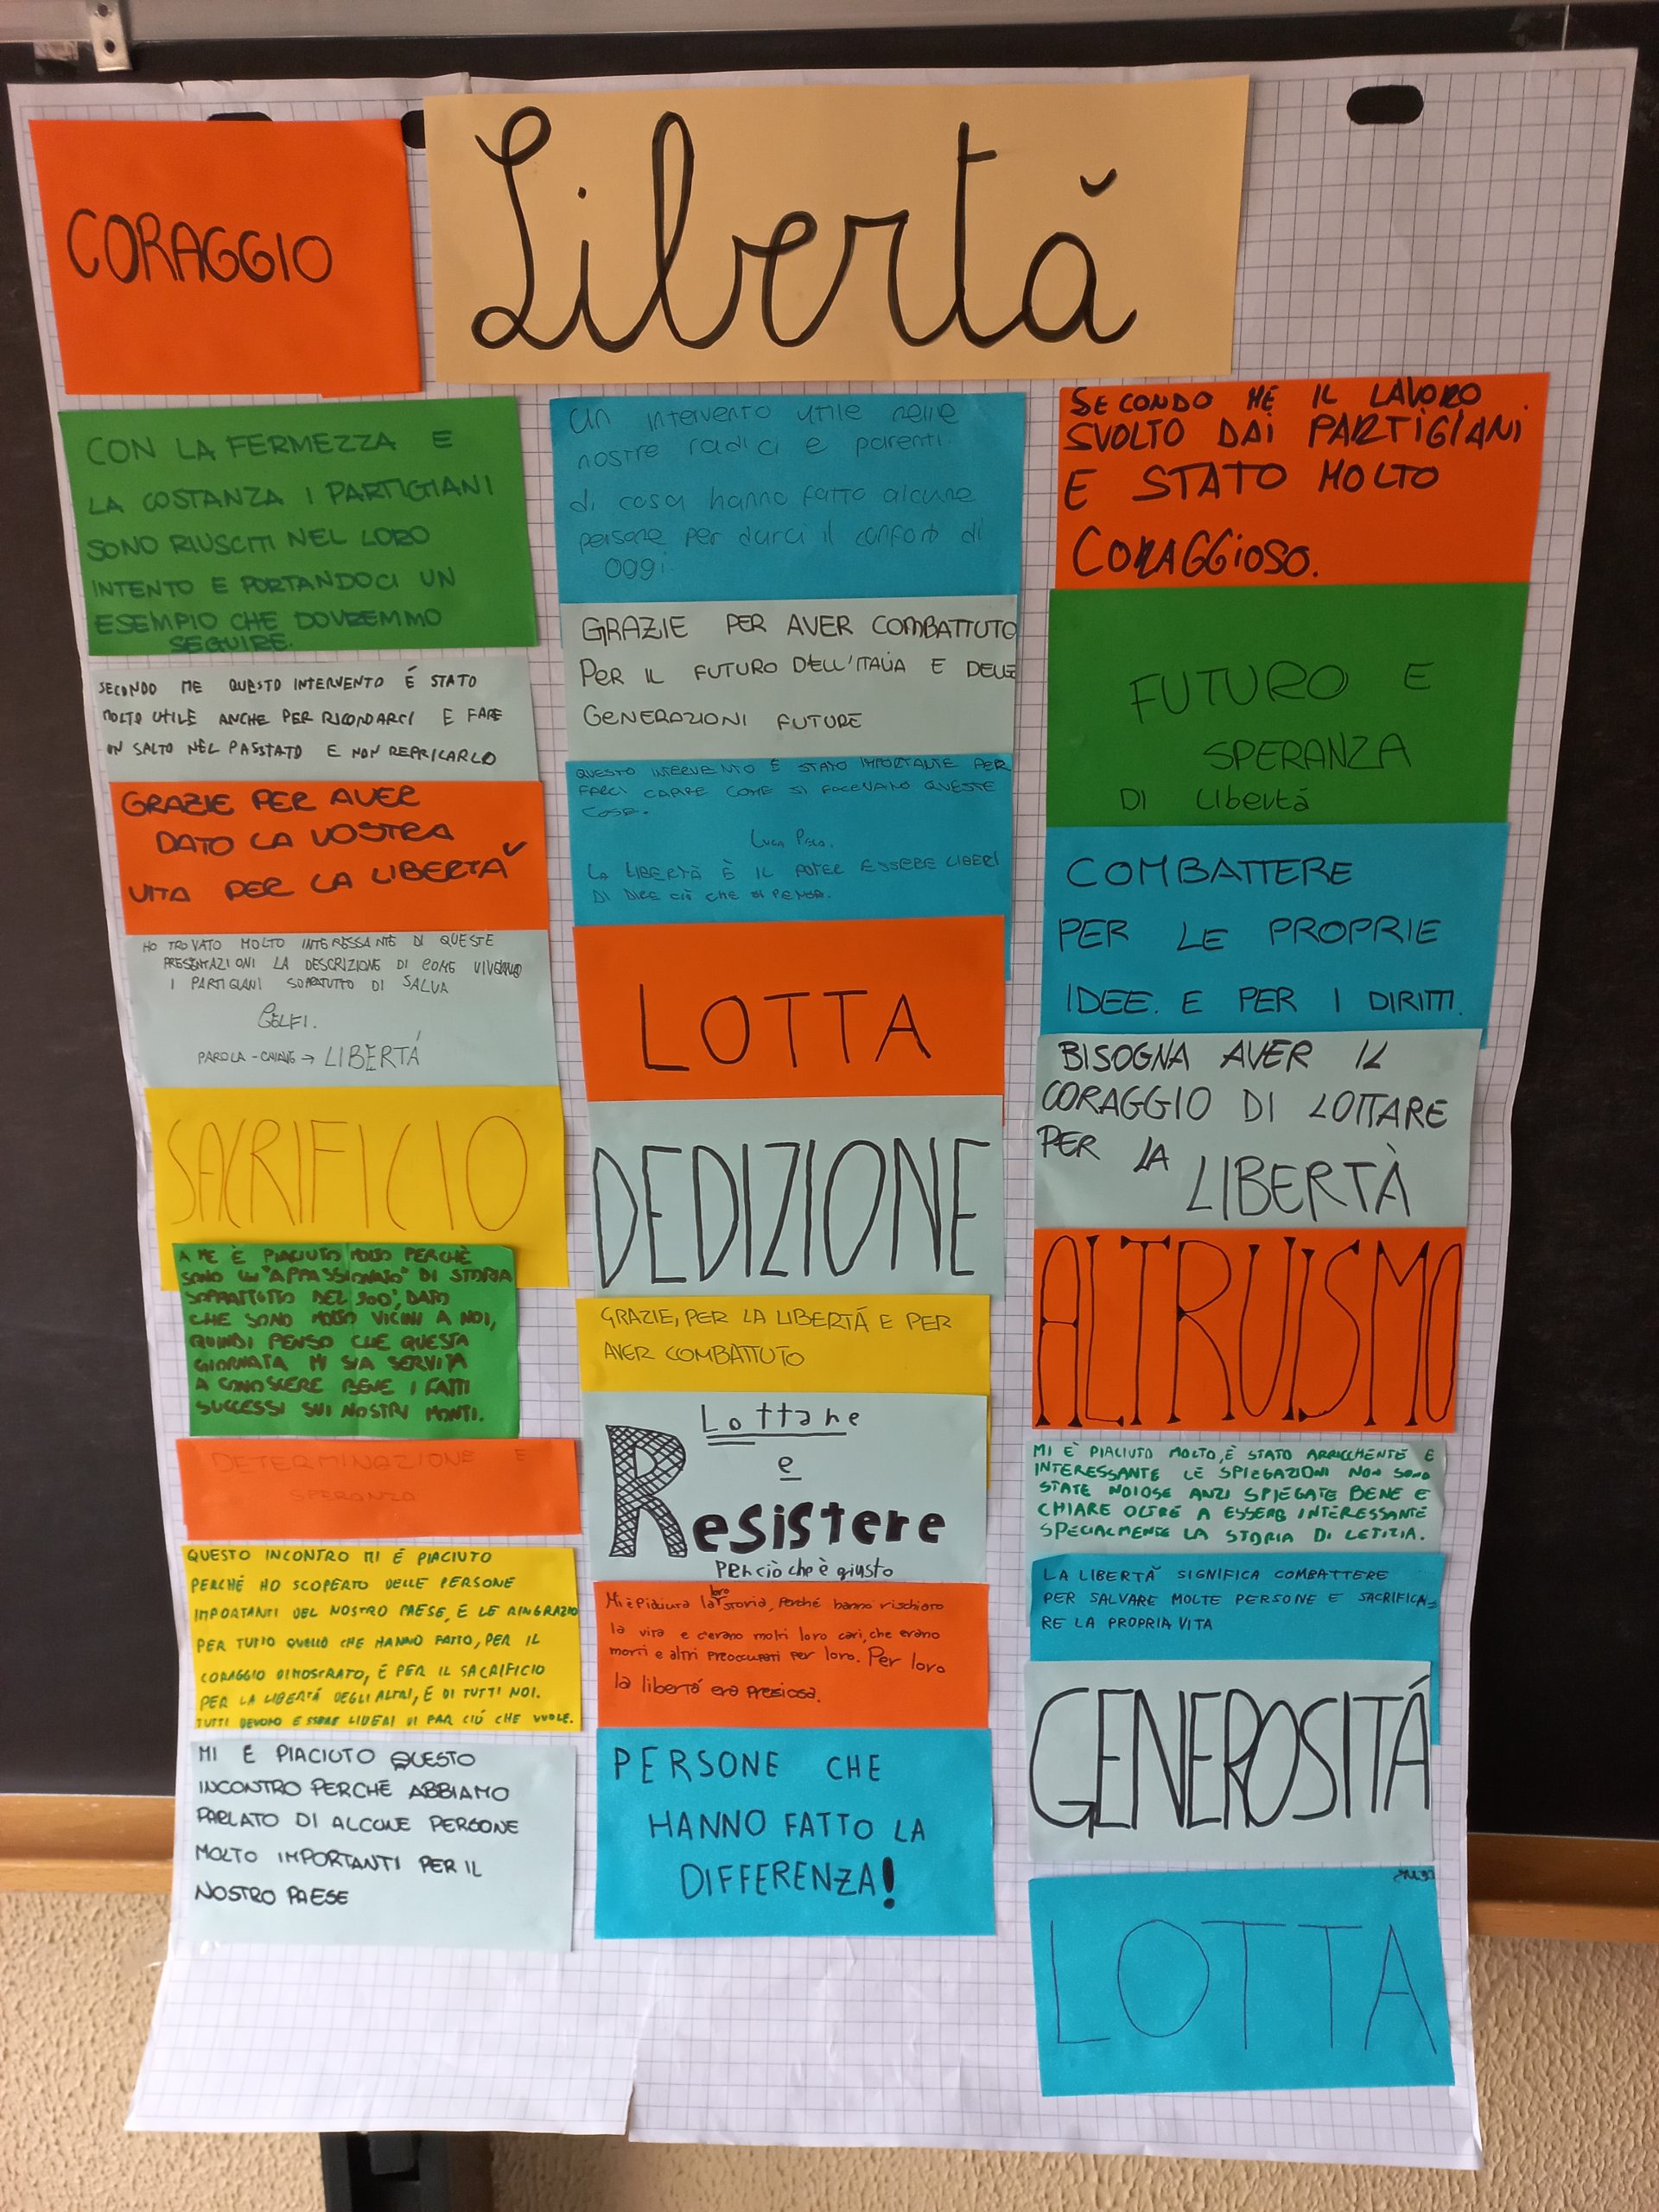 CORAGGIO
Libertà
CON LA FERMEZZA E
LA COSTANZA I PARTIGIANI
SONO RIUSCITI NEL LORO
INTENTO E PORTANDOCI UN
ESEMPIO CHE DOVREMMO
SEGUIRE.
SECONDO ME QUESTO INTERVENTO É STATO
MOLTO UTILE ANCHE PER RICORDARCI E FARE
UN SALTO NEL PASSTATO E NON REPRICARLO
GRAZIE PER AVER
DATO LA VOSTRA
VITA PER LA LIBERTÀ
HO TROVATO MOLTO INTERESSANTE DI QUESTE
PRESENTAZIONI LA DESCRIZIONE DI COME VIVEVANO
I PARTIGIANI SOPRATUTTO DI SALVA
GELFI.
PAROLA-CHIAVE → LIBERTÁ
SACRIFICIO
A ME È PIACIUTO MOLTO PERCHÈ
SONO UN "APPASSIONATO" DI STORIA
SOPRATTUTTO DEL '900', DATO
CHE SONO MOLTO VICINI A NOI,
QUINDI PENSO CHE QUESTA
GIORNATA MI SIA SERVITA
A CONOSCERE BENE I FATTI
SUCCESSI SUI NOSTRI MONTI.
DETERMINAZIONE E
SPERANZA
QUESTO INCONTRO MI É PIACIUTO
PERCHÉ HO SCOPERTO DELLE PERSONE
IMPORTANTI DEL NOSTRO PAESE, E LE RINGRAZIO
PER TUTTO QUELLO CHE HANNO FATTO, PER IL
CORAGGIO DIMOSTRATO, E PER IL SACRIFICIO
PER LA LIBERTÁ DEGLI ALTRI, E DI TUTTI NOI.
TUTTI DEVONO ESSERE LIBERI DI FAR CIÓ CHE VUOLE.
MI É PIACIUTO QUESTO
INCONTRO PERCHÉ ABBIAMO
PARLATO DI ALCUNE PERSONE
MOLTO IMPORTANTI PER IL
NOSTRO PAESE
Un intervento utile nelle
nostre radici e parenti.
di cosa hanno fatto alcune
persone per darci il confort di
oggi.
GRAZIE PER AVER COMBATTUTO
PER IL FUTURO DELL'ITALIA E DELLE
GENERAZIONI FUTURE
QUESTO INTERVENTO É STATO IMPORTANTE PER
FARCI CAPIRE COME SI FACEVANO QUESTE
COSE.
LA LIBERTÀ È IL POTER ESSERE LIBERI
DI DIRE CIÒ CHE SI PENSA.
LOTTA
DEDIZIONE
GRAZIE, PER LA LIBERTÁ E PER
AVER COMBATTUTO
Lottare
e
Resistere
per ciò che è giusto
Mi è piaciuta la loro storia, perché hanno rischiato
la vita e c'erano molti loro cari, che erano
morti e altri preoccupati per loro. Per loro
la libertá era presiosa.
PERSONE CHE
HANNO FATTO LA
DIFFERENZA!
SECONDO ME IL LAVORO
SVOLTO DAI PARTIGIANI
E STATO MOLTO
CORAGGIOSO.
FUTURO E
SPERANZA
DI Libertá
COMBATTERE
PER LE PROPRIE
IDEE. E PER I DIRITTI.
BISOGNA AVER IL
CORAGGIO DI LOTTARE
PER LA LIBERTÀ
ALTRUISMO
MI È PIACIUTO MOLTO, È STATO ARRICCHENTE E
INTERESSANTE LE SPIEGAZIONI NON SONO
STATE NOIOSE ANZI SPIEGATE BENE E
CHIARE OLTRE A ESSERE INTERESSANTE
SPECIALMENTE LA STORIA DI LETIZIA.
LA LIBERTÀ SIGNIFICA COMBATTERE
PER SALVARE MOLTE PERSONE E SACRIFICA=
RE LA PROPRIA VITA
GENEROSITÁ
LOTTA